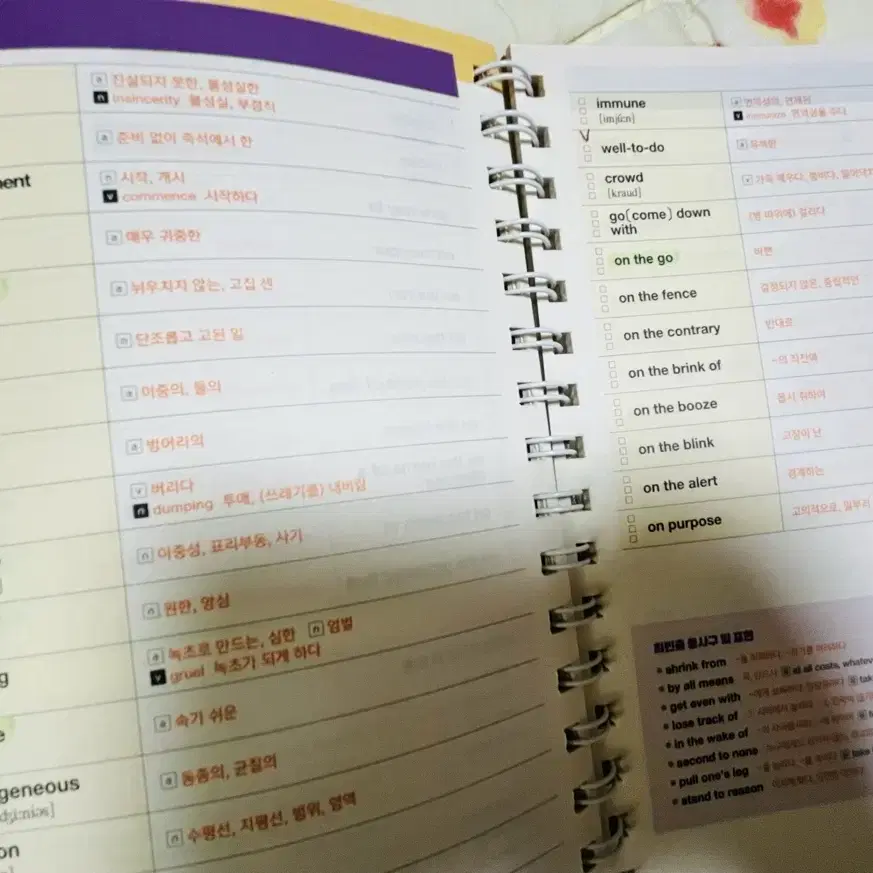 a 진실되지 못한, 불성실한
n insincerity 불성실, 부정직
a 준비 없이 즉석에서 한
ment
n 시작, 개시
v commence 시작하다
a 매우 귀중한
a 뉘우치지 않는, 고집 센
n 단조롭고 고된 일
a 이중의, 둘의
a 벙어리의
v 버리다
n dumping 투매, (쓰레기를) 내버림
n 이중성, 표리부동, 사기
n 원한, 앙심
g
a 녹초로 만드는, 심한 n 엄벌
v gruel 녹초가 되게 하다
e
a 속기 쉬운
geneous
dʒíːniəs]
a 동종의, 균질의
on
n 수평선, 지평선, 범위, 영역
immune
[imjúːn]
a 면역성의, 면제된
v immunize 면역성을 주다
well-to-do
a 유복한
crowd
[kraud]
v 가득 메우다, 붐비다,
go(come) down
with
(병 따위에) 걸리다
on the go
바쁜
on the fence
결정되지 않은, 중립적인
on the contrary
반대로
on the brink of
~의 직전에
on the booze
몹시 취하여
on the blink
고장이 난
on the alert
경계하는
on purpose
고의적으로, 일부러
최빈출 동사구 및 표현
shrink from
by all means at all costs, whatev
get even with
lose track of
in the wake of
second to none
pull one's leg
stand to reason